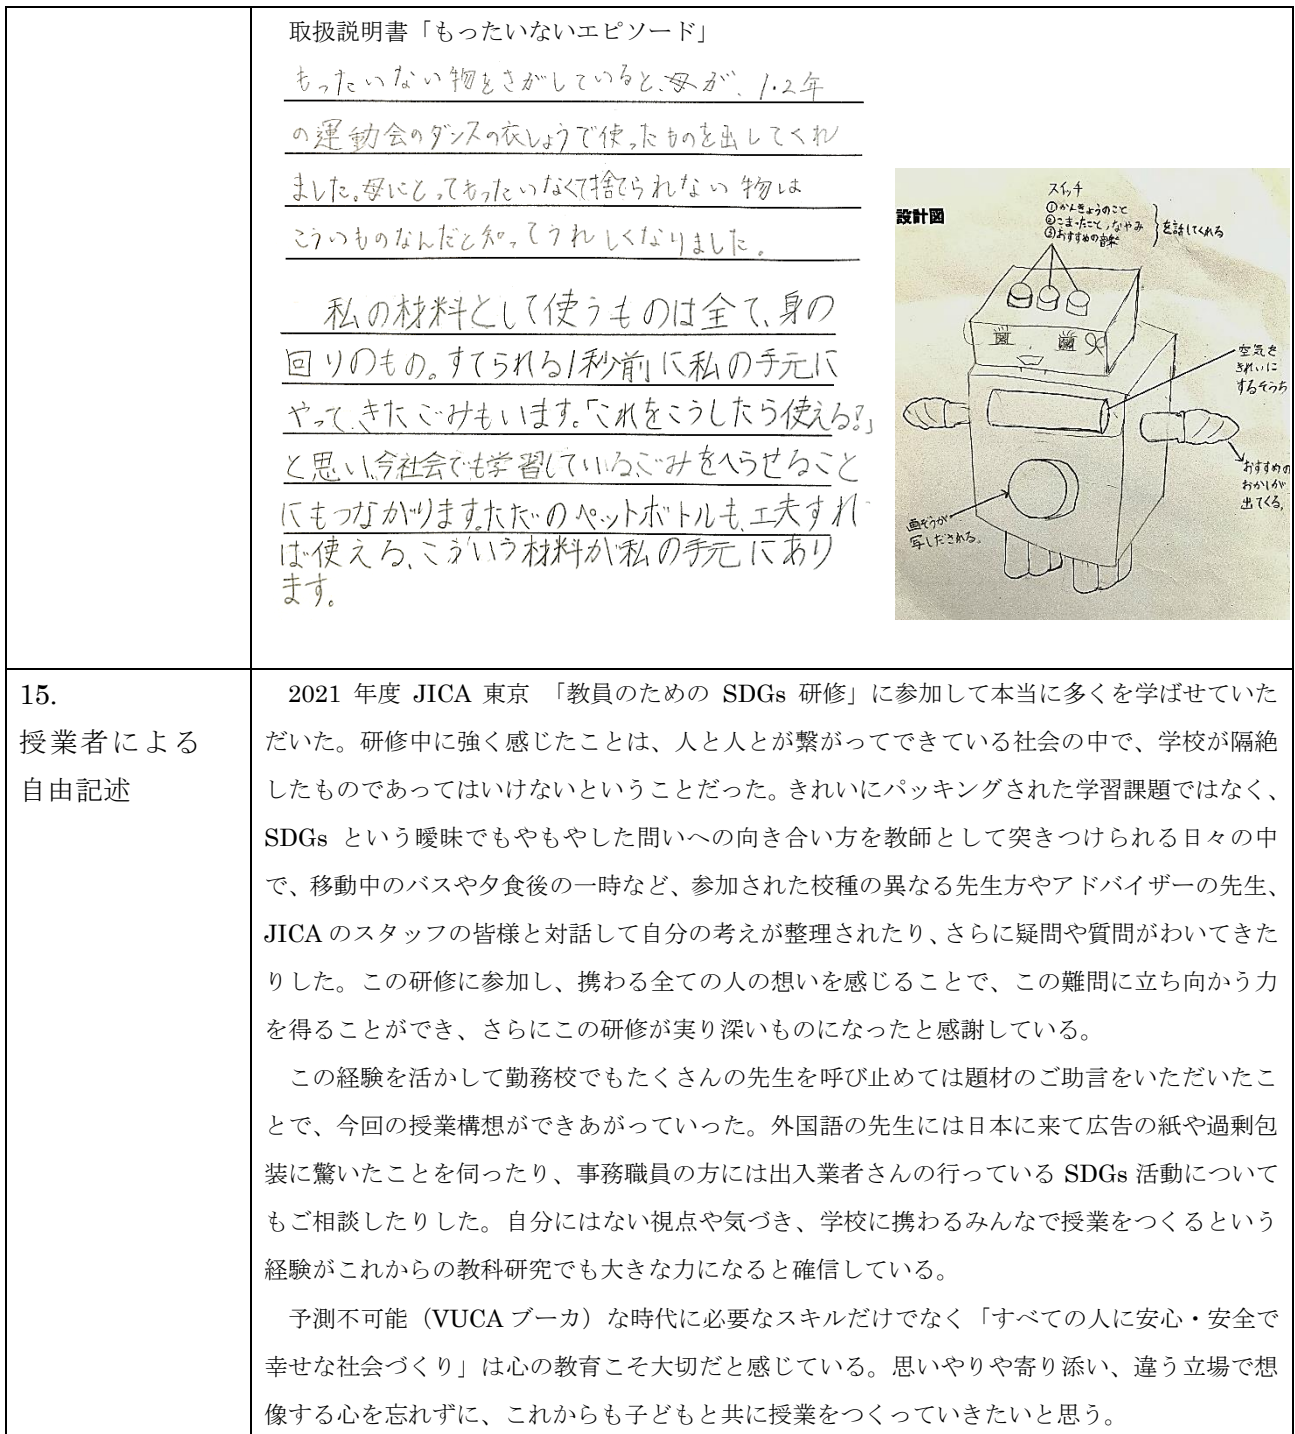 取扱説明書「もったいないエピソード」
もったいない物をさがしていると、母が、1・2年
の運動会のダンスの衣しょうで使ったものを出してくれ
ました。母にとってもったいなくて捨てられない物は
こういものなんだと知ってうれしくなりました。
私の材料として使うものは全て、身の
回りのもの。すてられる1秒前に私の手元に
やって、きたごみもいます。「これをこうしたら使える!」
と思い、今社会でも学習しているごみをへらせること
にもつながります。ただのペットボトルも、工夫すれ
ば使える、こういう材料が私の手元にあり
ます。
設計図
スイッチ
①かんきょうのこと
②こまったこと、なやみ
③おすすめの音楽
を話してくれる
空気を
きれいに
するそうち
おすすめの
おかしが
出てくる。
画ぞうが
写しだされる。
15.
授業者による
自由記述
2021 年度 JICA 東京 「教員のための SDGs 研修」に参加して本当に多くを学ばせていた
だいた。研修中に強く感じたことは、人と人とが繋がってできている社会の中で、学校が隔絶
したものであってはいけないということだった。きれいにパッキングされた学習課題ではなく、
SDGs という曖昧でもやもやした問いへの向き合い方を教師として突きつけられる日々の中
で、移動中のバスや夕食後の一時など、参加された校種の異なる先生方やアドバイザーの先生、
JICA のスタッフの皆様と対話して自分の考えが整理されたり、さらに疑問や質問がわいてきた
りした。この研修に参加し、携わる全ての人の想いを感じることで、この難問に立ち向かう力
を得ることができ、さらにこの研修が実り深いものになったと感謝している。
この経験を活かして勤務校でもたくさんの先生を呼び止めては題材のご助言をいただいたこ
とで、今回の授業構想ができあがっていった。外国語の先生には日本に来て広告の紙や過剰包
装に驚いたことを伺ったり、事務職員の方には出入業者さんの行っている SDGs 活動について
もご相談したりした。自分にはない視点や気づき、学校に携わるみんなで授業をつくるという
経験がこれからの教科研究でも大きな力になると確信している。
予測不可能（VUCA ブーカ）な時代に必要なスキルだけでなく「すべての人に安心・安全で
幸せな社会づくり」は心の教育こそ大切だと感じている。思いやりや寄り添い、違う立場で想
像する心を忘れずに、これからも子どもと共に授業をつくっていきたいと思う。